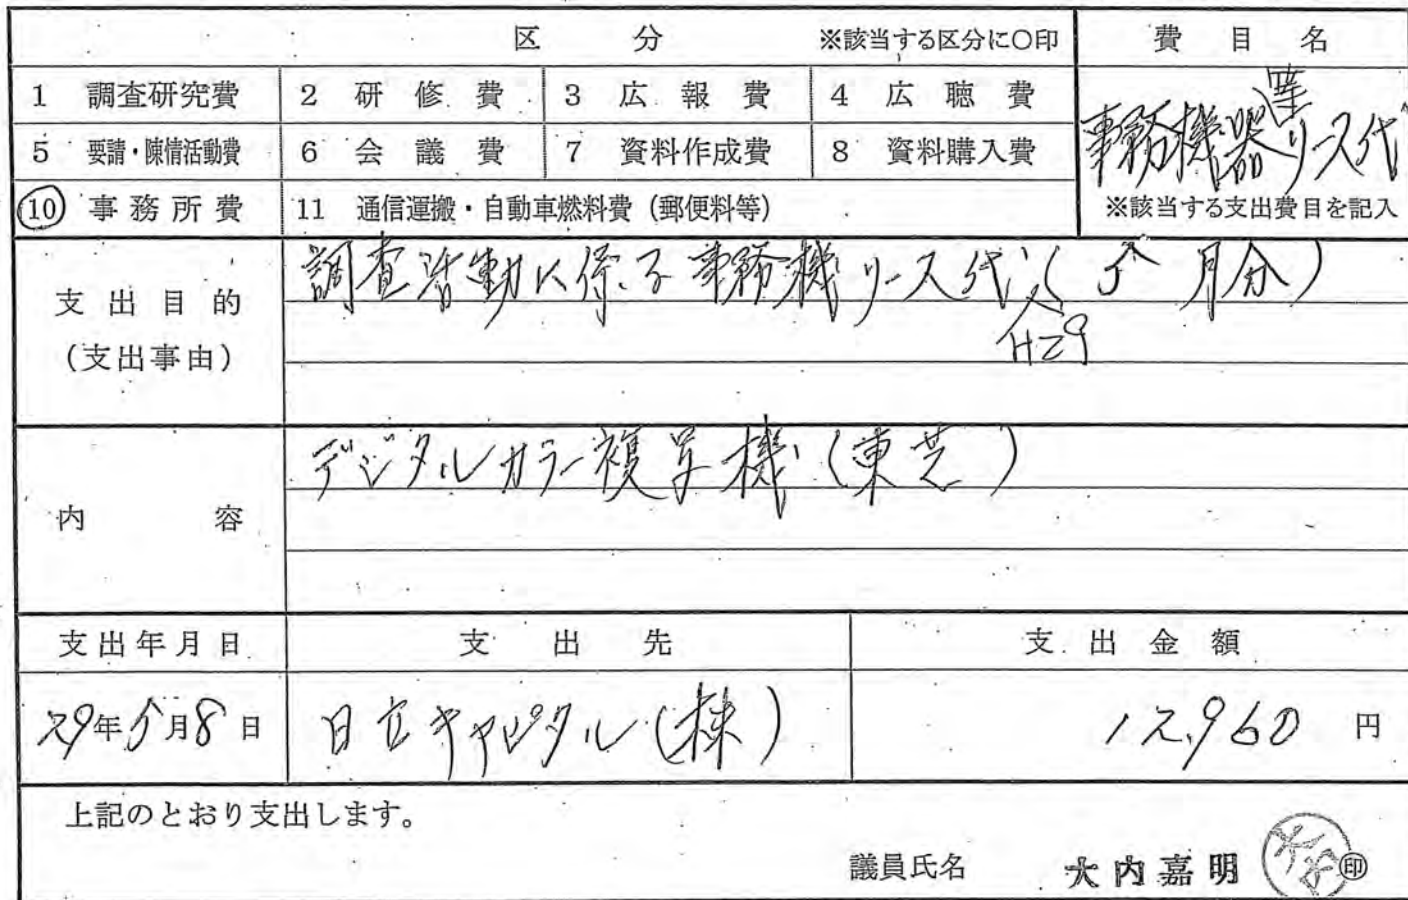 区 分 ※該当する区分に○印 費 目 名
1 調査研究費 2 研 修 費 3 広 報 費 4 広 聴 費
事務機器リース代
5 要請・陳情活動費 6 会 議 費 7 資料作成費 8 資料購入費
10 事 務 所 費 11 通信運搬・自動車燃料費(郵便料等) ※該当する支出費目を記入
支 出 目 的
(支出事由)
調査活動に係る事務機リース代(5月分)
H29
内 容
デジタルカラー複写機(東芝)
支出年月日 支 出 先 支 出 金 額
29年5月8日 日立キャピタル(株) 12,960 円
上記のとおり支出します。
議員氏名 大内嘉明 印